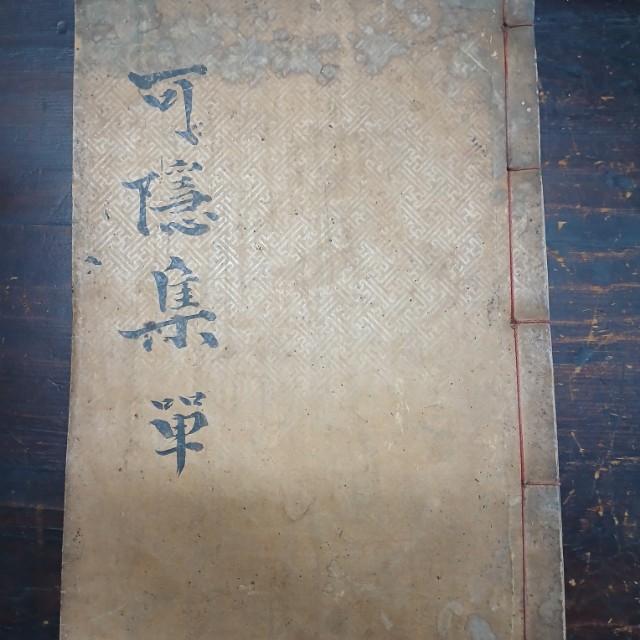 可隱集 單